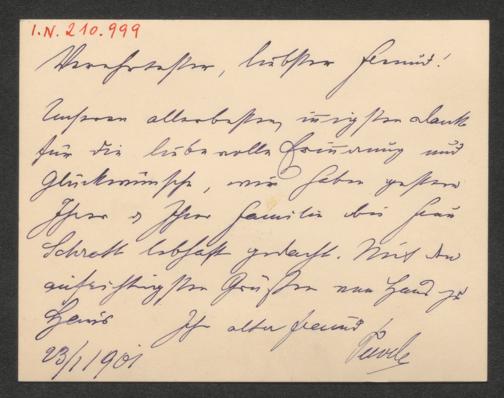 I.N. 210.999
Verehrtester, liebster Freund!
Unseren allerbesten, innigsten Dank
für die liebevolle Erinnerung und
Glückwünsche, wir haben gestern
Ihrer & Ihrer Familie bei Frau
Schratt lebhaft gedacht. Mit den
aufrichtigsten Grüßen von Haus zu
Haus Ihr alter Freund
23/1 1901